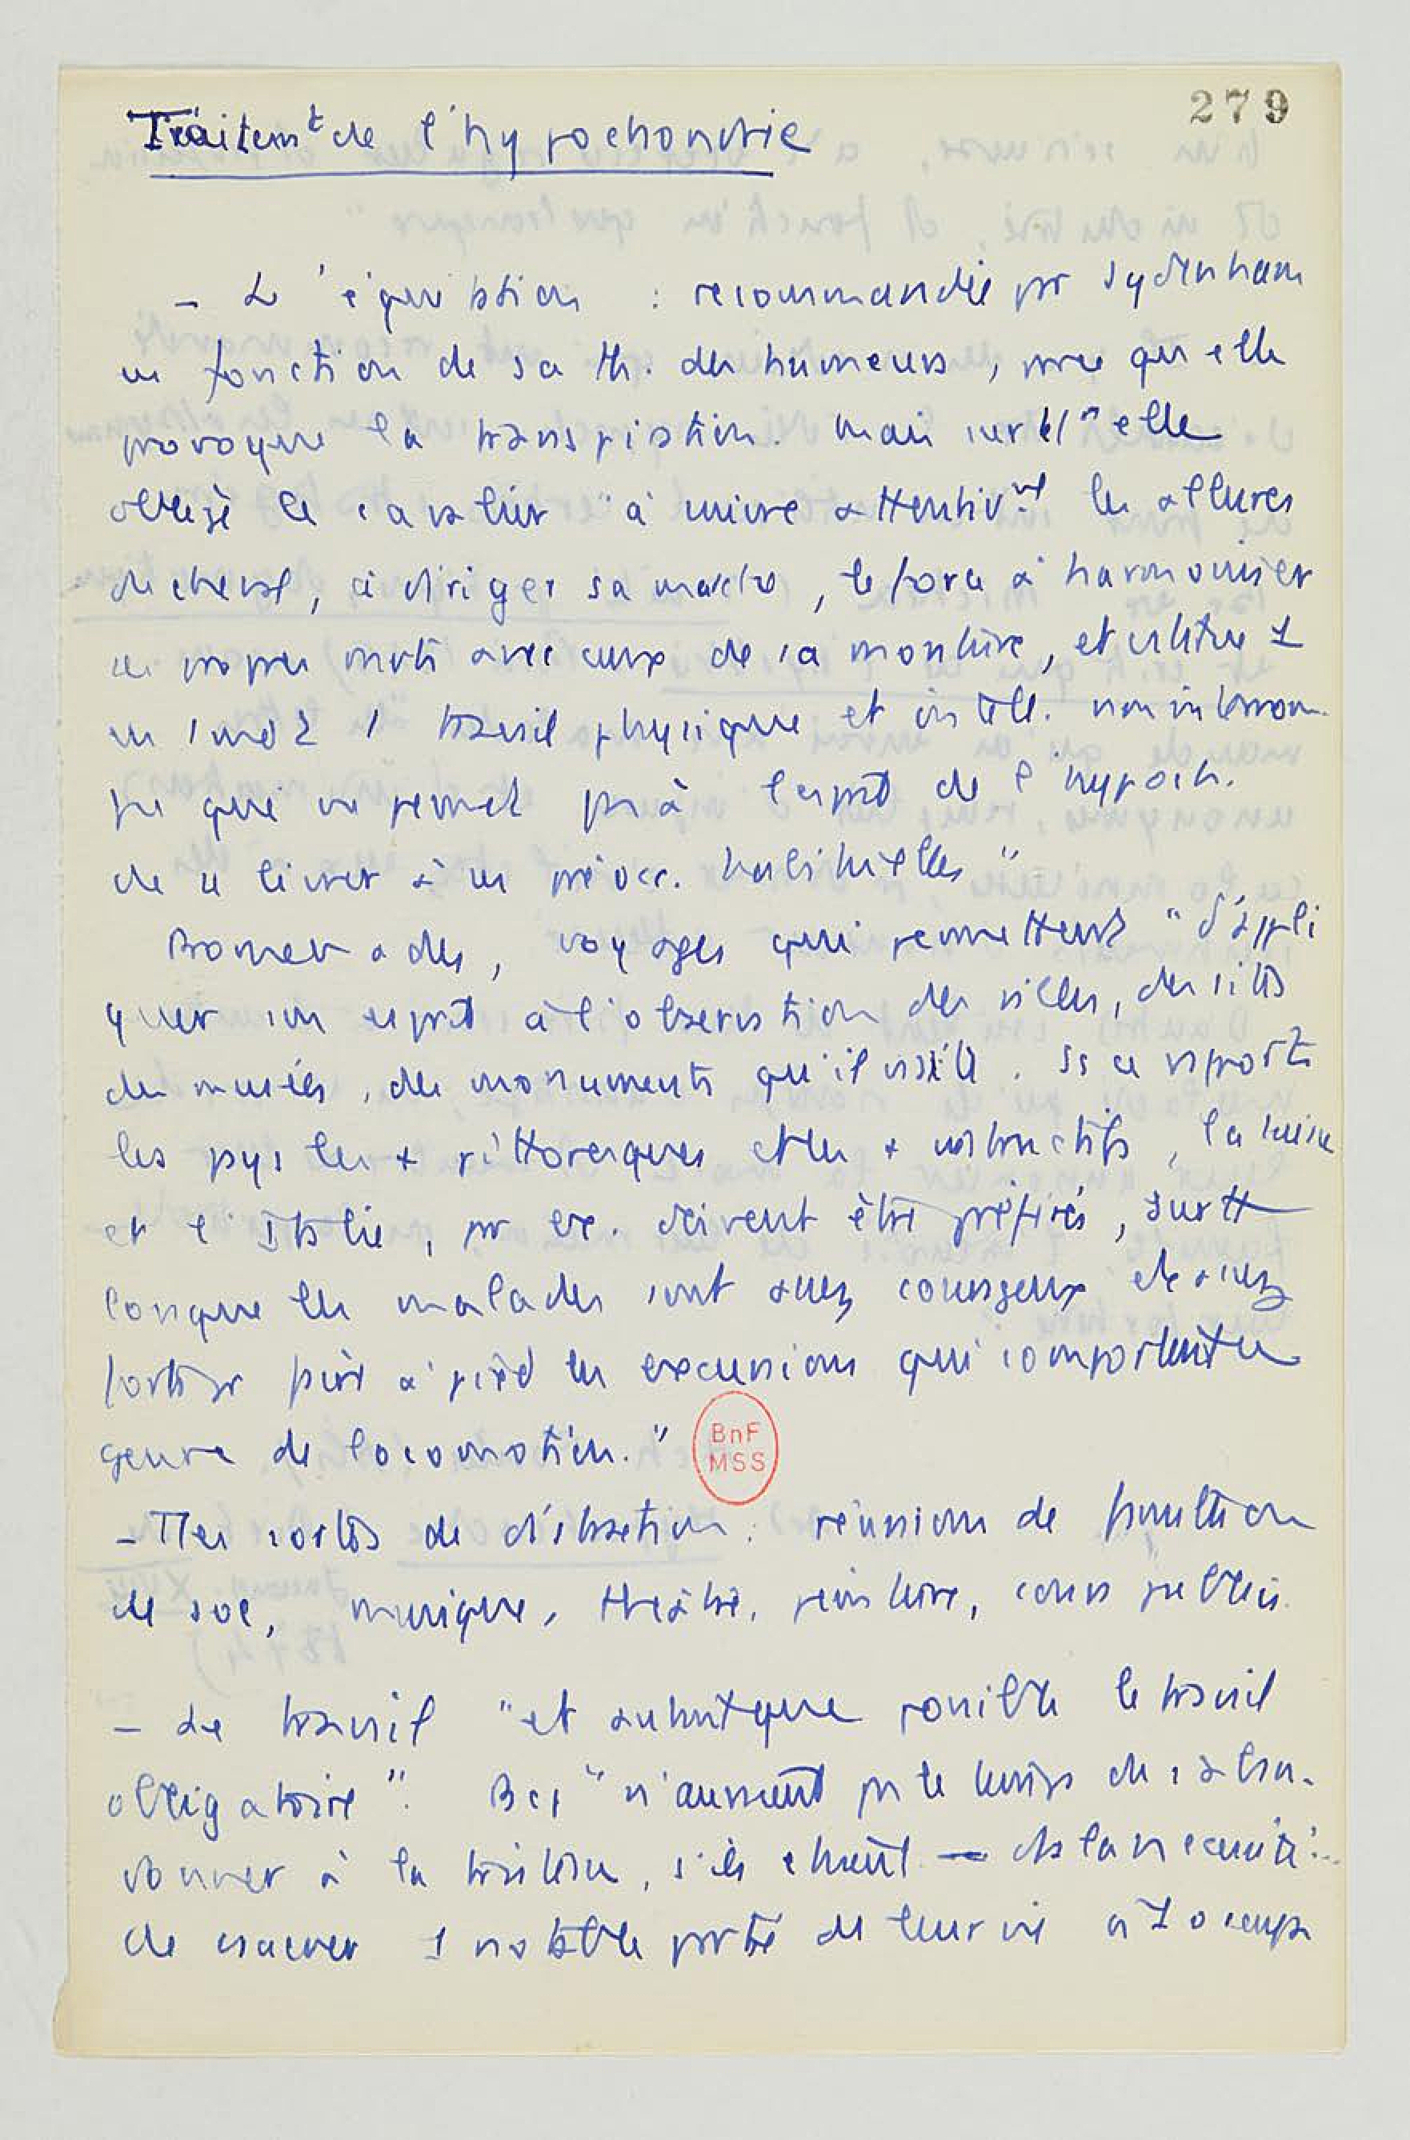 279
Traitemt de l'hypochondrie
- L'équitation : recommandée pr Sydenham
en fonction de sa th. des humeurs, pce qu'elle
provoque la transpiration. Mais surtt elle
oblige le cavalier "à suivre attentivt les allures
du cheval, à diriger sa marche, le force à harmoniser
ses propres mvts avec ceux de sa monture, et cultive 1
en 1 mot 1 travail physique et intell. non interrom
pu qui ne permet pas à l'esprit de l'hypoch.
de se livrer à ses préocc. habituelles"
Promenades, voyages qui permettent "d'appli
quer son esprit à l'observation des villes, des sites
des musées, des monuments qu'il visite. Ss ce rapport
les pays les + pittoresques et les + instructifs, la Suisse
et l'Italie, pr ex. doivent être préférés, surtt
lorsque les malades sont assez courageux et assez
forts pr faire à pied les excursions qui comportent ce
genre de locomotion."
BnF
MSS
- Ttes sortes de distraction : réunions de
de soc, musique, théâtre, peinture, cours publics.
- Le travail "et autant que possible le travail
obligatoire". Bcp "n'auraient pas le temps de s'aban-
donner à la tristesse, s'ils étaient ds la nécessité
de consacrer 1 notable partie de leur vie à 1 occup